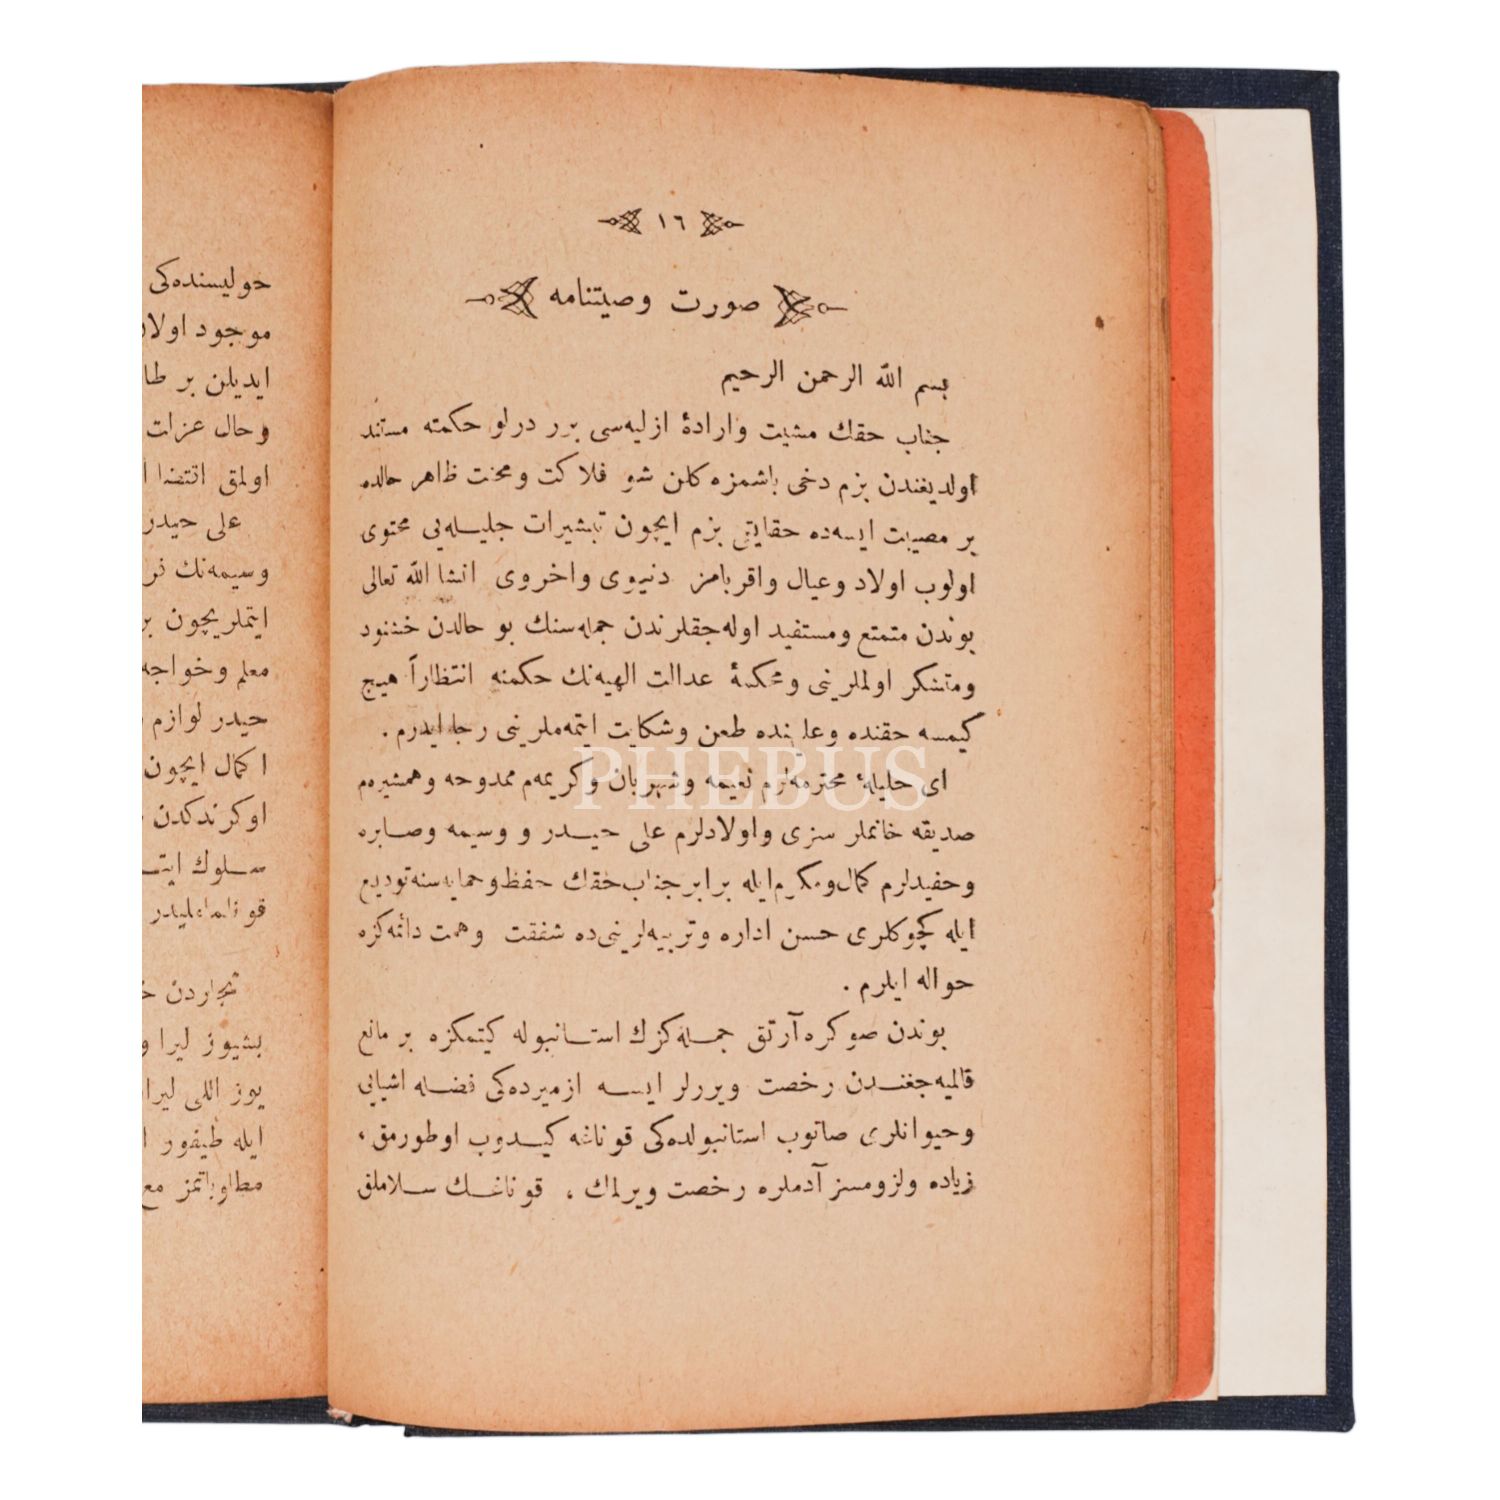 ١٦
صورت وصيتنامه
بسم الله الرحمن الرحيم
جناب حقك مشيت وارادهٔ ازليه‌سى برر درلو حكمته مستند
اولديغندن بزم دخى باشمزه كلن شو فلاكت ومحنت ظاهر حالده
بر مصيبت ايسه‌ده حقايقى بزم ايچون تبشيرات جليله‌يى محتوى
اولوب اولاد وعيال واقربامز دنيوى واخروى انشا الله تعالى
بوندن متمتع ومستفيد اوله‌جقلرندن جمله‌سنك بو حالدن خشنود
ومتشكر اولملرينى ومحكمهٔ عدالت الهيه‌نك حكمنه انتظاراً هيچ
كيمسه حقنده وعليهنده طعن وشكايت ايتمه‌ملرينى رجا ايدرم .
اى حليلهٔ محترمه‌لرم نعيمه وشهربان وكريمه‌م ممدوحه وهمشيره‌م
صديقه خانملر سزى واولادلرم على حيدر و وسيمه وصابره
وحفيدلرم كمال ومكرم ايله برابر جناب حقك حفظ وحمايه‌سنه توديع
ايله كچوكلرى حسن اداره وتربيه‌لرينى‌ده شفقت وهمت دائمه‌كزه
حواله ايلرم .
بوندن صوكره آرتق جمله‌كزك استانبوله كيتمكزه بر مانع
قالميه‌جغندن رخصت ويررلر ايسه ازميرده‌كى فضله اشيايى
وحيوانلرى صاتوب استانبولده‌كى قوناغه كيدوب اوطورمق ،
زياده ولزومسز آدملره رخصت ويرلمك ، قوناغك سلاملق
حوليسنده‌كى
موجود
ايديلن بر
وحال عزات
اولمق اقتضا
على حيدر
وسيمه‌نك
ايتملريچون
معلم وخواجه
حيدر لوازم
اكمال ايچون
اوكرندكدن
سلوك
تجاردن
بشيوز ليرا و
يوز اللى ليرا
ايله طيفور
مطلوباتمز مع
PHEBUS